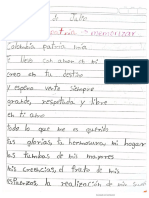 de Julio
a memorizar
Colombia patria mia
te llevo con amor en mi
creo en tu destino
y espero verte siempre
grande, respetada y libre
en ti amo
todo lo que me es querido
tus glorias tu hermosura mi hogar
las tumbas de mis mayores
mis creencias, el fruto de mis
esfuerzos la realización de mis